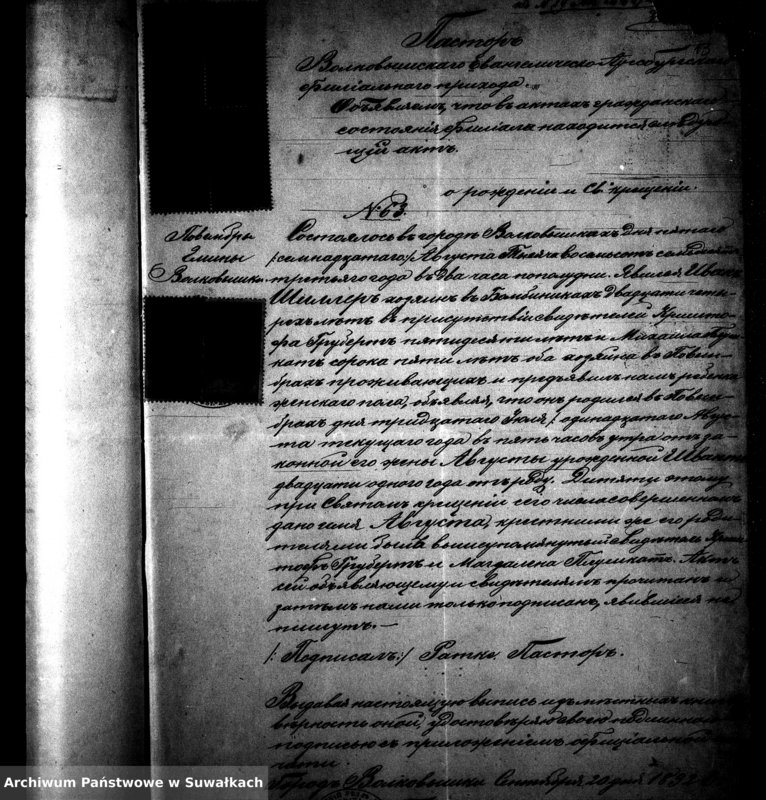 Пасторъ
Волковышскаго Евангелическо-Аугсбургскаго
филіальнаго прихода.
Объявляемъ, что въ актахъ гражданскаго
состоянія филіала находится слѣдую-
щій актъ.
о рожденіи и Св. крещеніи.
№ 63.
Повембры
Волковышки
Состоялось въ городѣ Волковышкахъ дня пятаго
/семнадцатаго/ Августа Тысяча восемьсотъ семьдесятъ
третьяго года въ два часа пополудни. Явился Иванъ
Шиллеръ хозяинъ въ Бамбиникахъ двадцати четы-
рехъ лѣтъ въ присутствіи свидѣтелей Кристо-
фа Грубертъ пятидесяти лѣтъ и Михаила
сорока пяти лѣтъ оба хозяина въ Повем-
брахъ проживающихъ и предъявилъ намъ ребенка
женскаго пола, объявляя, что онъ родился въ Повем-
брахъ дня тридцатаго Іюля /: одинадцатаго Авгус-
та текущаго года въ пять часовъ утра отъ за-
конной его жены Августы урожденной
двадцати одного года отъ роду. Дитяти этому
при Святомъ крещеніи сего числа совершенномъ
дано имя Августа, крестными же его роди-
телями были вышеупомянутый свидѣтель Крис-
тофъ Грубертъ и Магдалена Пушкатъ. Актъ
сей объявляющему и свидѣтелямъ прочитанъ и
затѣмъ нами только подписанъ, явившіяся не
пишутъ. —
/: Подписалъ:/ Ратке. Пасторъ.
Выдавая настоящую выпись изъ
вѣрность оной, удостовѣряю своею
подписью съ приложеніемъ оффиціальной
чати.
Городъ Волковышки Сентября 20 дня 1892
Archiwum Państwowe w Suwałkach